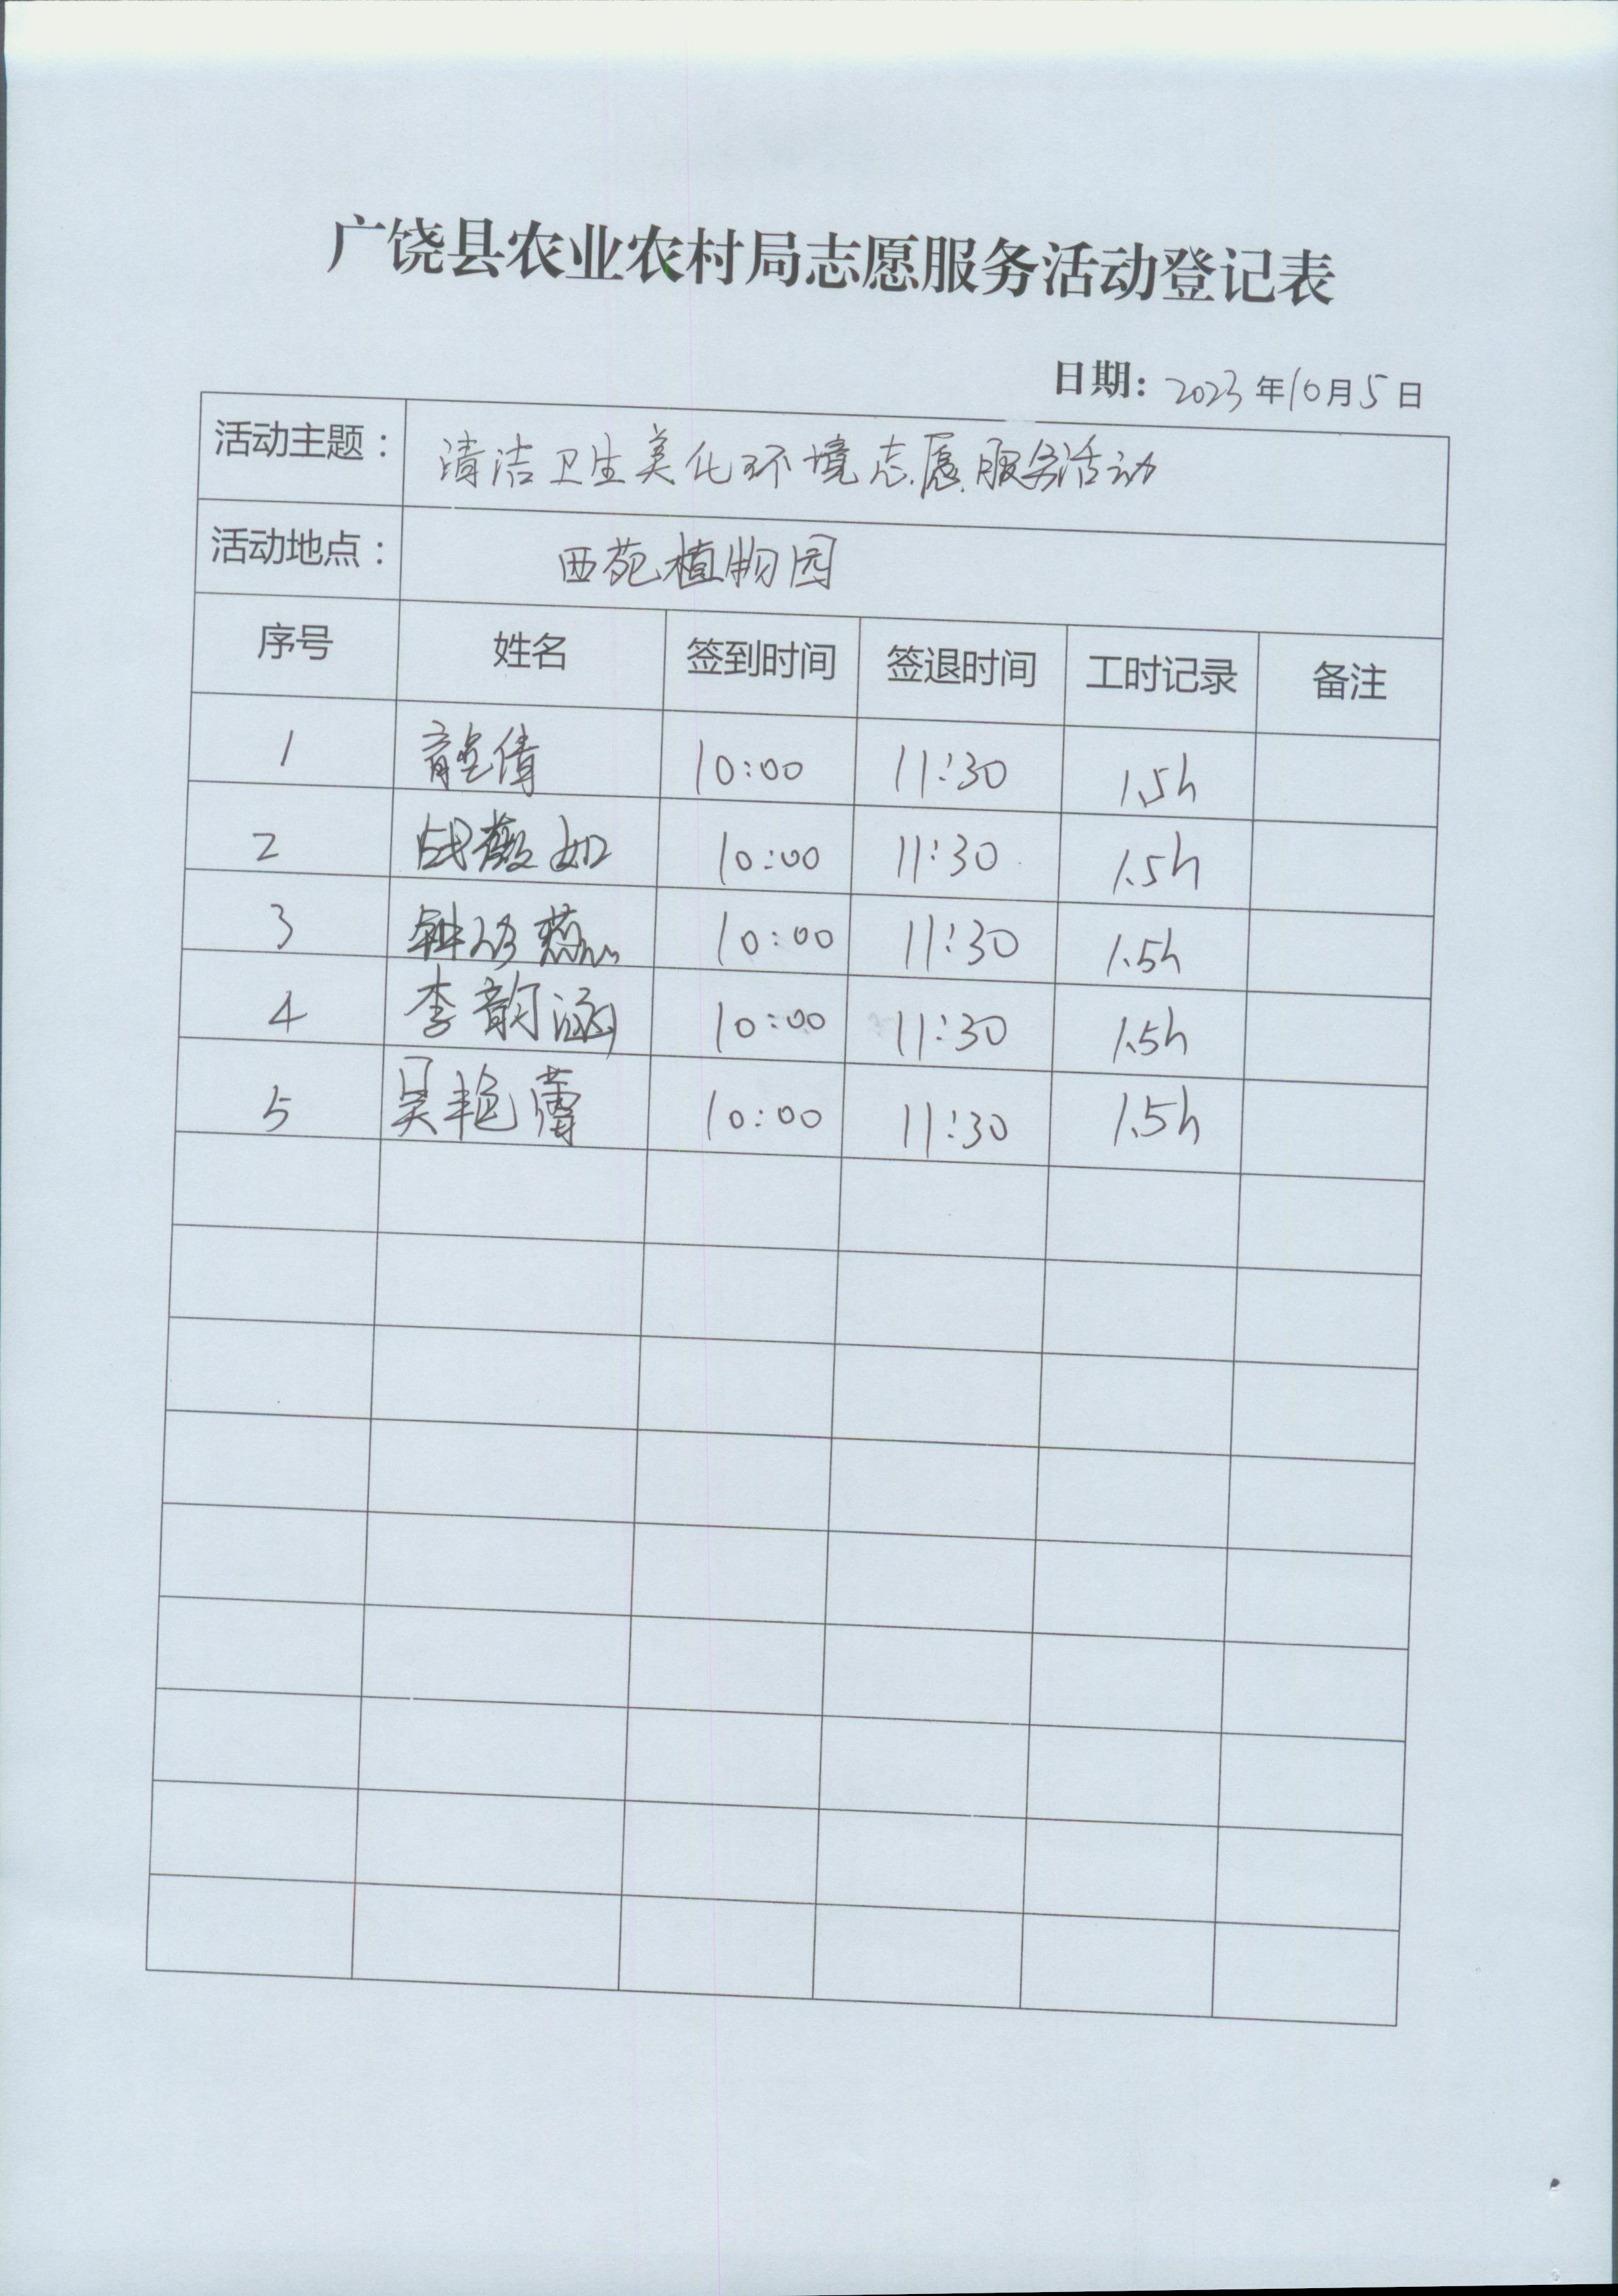 广饶县农业农村局志愿服务活动登记表
日期：2023年10月5日
活动主题： 清洁卫生美化环境志愿服务活动
活动地点： 西苑植物园
序号 姓名 签到时间 签退时间 工时记录 备注
1 倩 10:00 11:30 1.5h
2 战薇如 10:00 11:30 1.5h
3 钟 10:00 11:30 1.5h
4 李韵涵 10:00 11:30 1.5h
5 吴艳蕾 10:00 11:30 1.5h